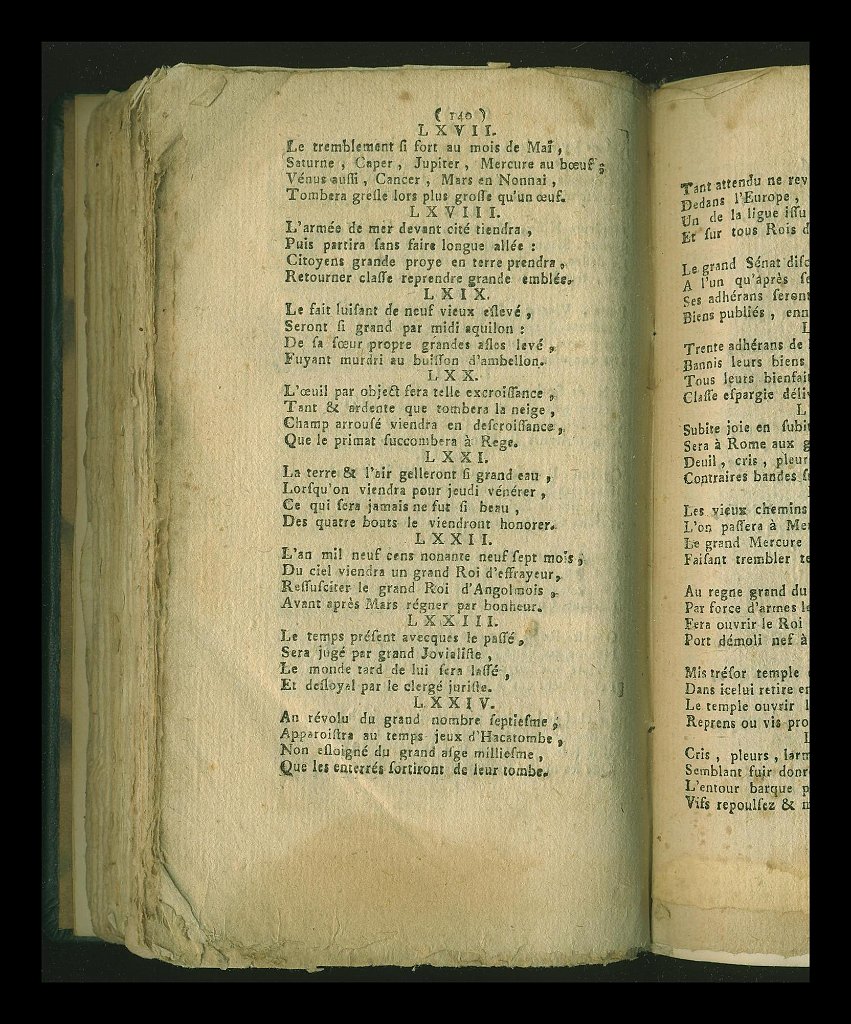 ( 140 )
LXVII.
Le tremblement ſi fort au mois de Mai,
Saturne, Caper, Jupiter, Mercure au bœuf;
Vénus auſſi, Cancer, Mars en Nonnai,
Tombera greſle lors plus groſſe qu'un œuf.
LXVIII.
L'armée de mer devant cité tiendra,
Puis partira ſans faire longue allée :
Citoyens grande proye en terre prendra,
Retourner claſſe reprendre grande emblée.
LXIX.
Le fait luiſant de neuf vieux eſlevé,
Seront ſi grand par midi aquilon :
De ſa ſœur propre grandes aſles levé,
Fuyant murdri au buiſſon d'ambellon.
LXX.
L'œuil par object fera telle excroiſſance,
Tant & ardente que tombera la neige,
Champ arrouſé viendra en deſcroiſſance,
Que le primat ſuccombera à Rege.
LXXI.
La terre & l'air gelleront ſi grand eau,
Lorſqu'on viendra pour jeudi vénérer,
Ce qui ſera jamais ne fut ſi beau,
Des quatre bouts le viendront honorer.
LXXII.
L'an mil neuf cens nonante neuf ſept mois,
Du ciel viendra un grand Roi d'effrayeur,
Reſſuſciter le grand Roi d'Angolmois,
Avant après Mars régner par bonheur.
LXXIII.
Le temps préſent avecques le paſſé,
Sera jugé par grand Jovialiſte,
Le monde tard de lui ſera laſſé,
Et deſloyal par le clergé juriſte.
LXXIV.
An révolu du grand nombre ſeptieſme,
Apparoiſtra au temps jeux d'Hacatombe,
Non eſloigné du grand aige millieſme,
Que les enterrés ſortiront de leur tombe.
Tant attendu ne rev
Dedans l'Europe,
Un de la ligue iſſu
Et ſur tous Rois d
Le grand Sénat diſc
A l'un qu'après ſe
Ses adhérans ſeront
Biens publiés, enn
L
Trente adhérans de
Bannis leurs biens
Tous leurs bienfait
Claſſe eſpargie déli
L
Subite joie en ſubit
Sera à Rome aux g
Deuil, cris, pleur
Contraires bandes ſ
Les vieux chemins
L'on paſſera à Me
Le grand Mercure
Faiſant trembler te
Au regne grand du
Par force d'armes le
Fera ouvrir le Roi
Port démoli nef à
Mis tréſor temple
Dans icelui retire en
Le temple ouvrir l
Reprens ou vis pro
L
Cris, pleurs, larm
Semblant fuir donr
L'entour barque p
Vifs repoulſez & m